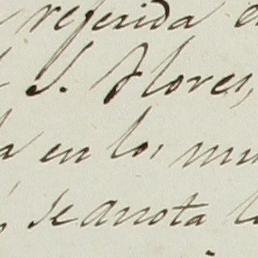 referida e
S. Flores,
a en los mu
se anota l